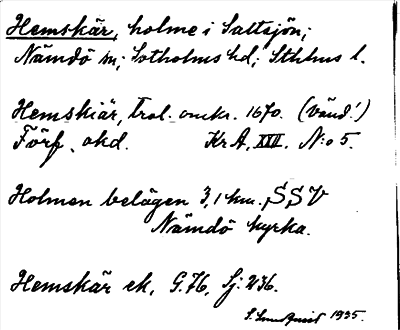 Hemskär, holme i Saltsjön;
Nämdö sn; Sotholms hd; Sthlms l.
Hemskiär, trol. omkr. 1670. (Vänd!)
Förf. okd. Kr A, XXII. N:o 5.
Holmen belägen 3,1 km. SSV
Nämdö kyrka.
Hemskär ek. G.76, Sj: 236.
1935.